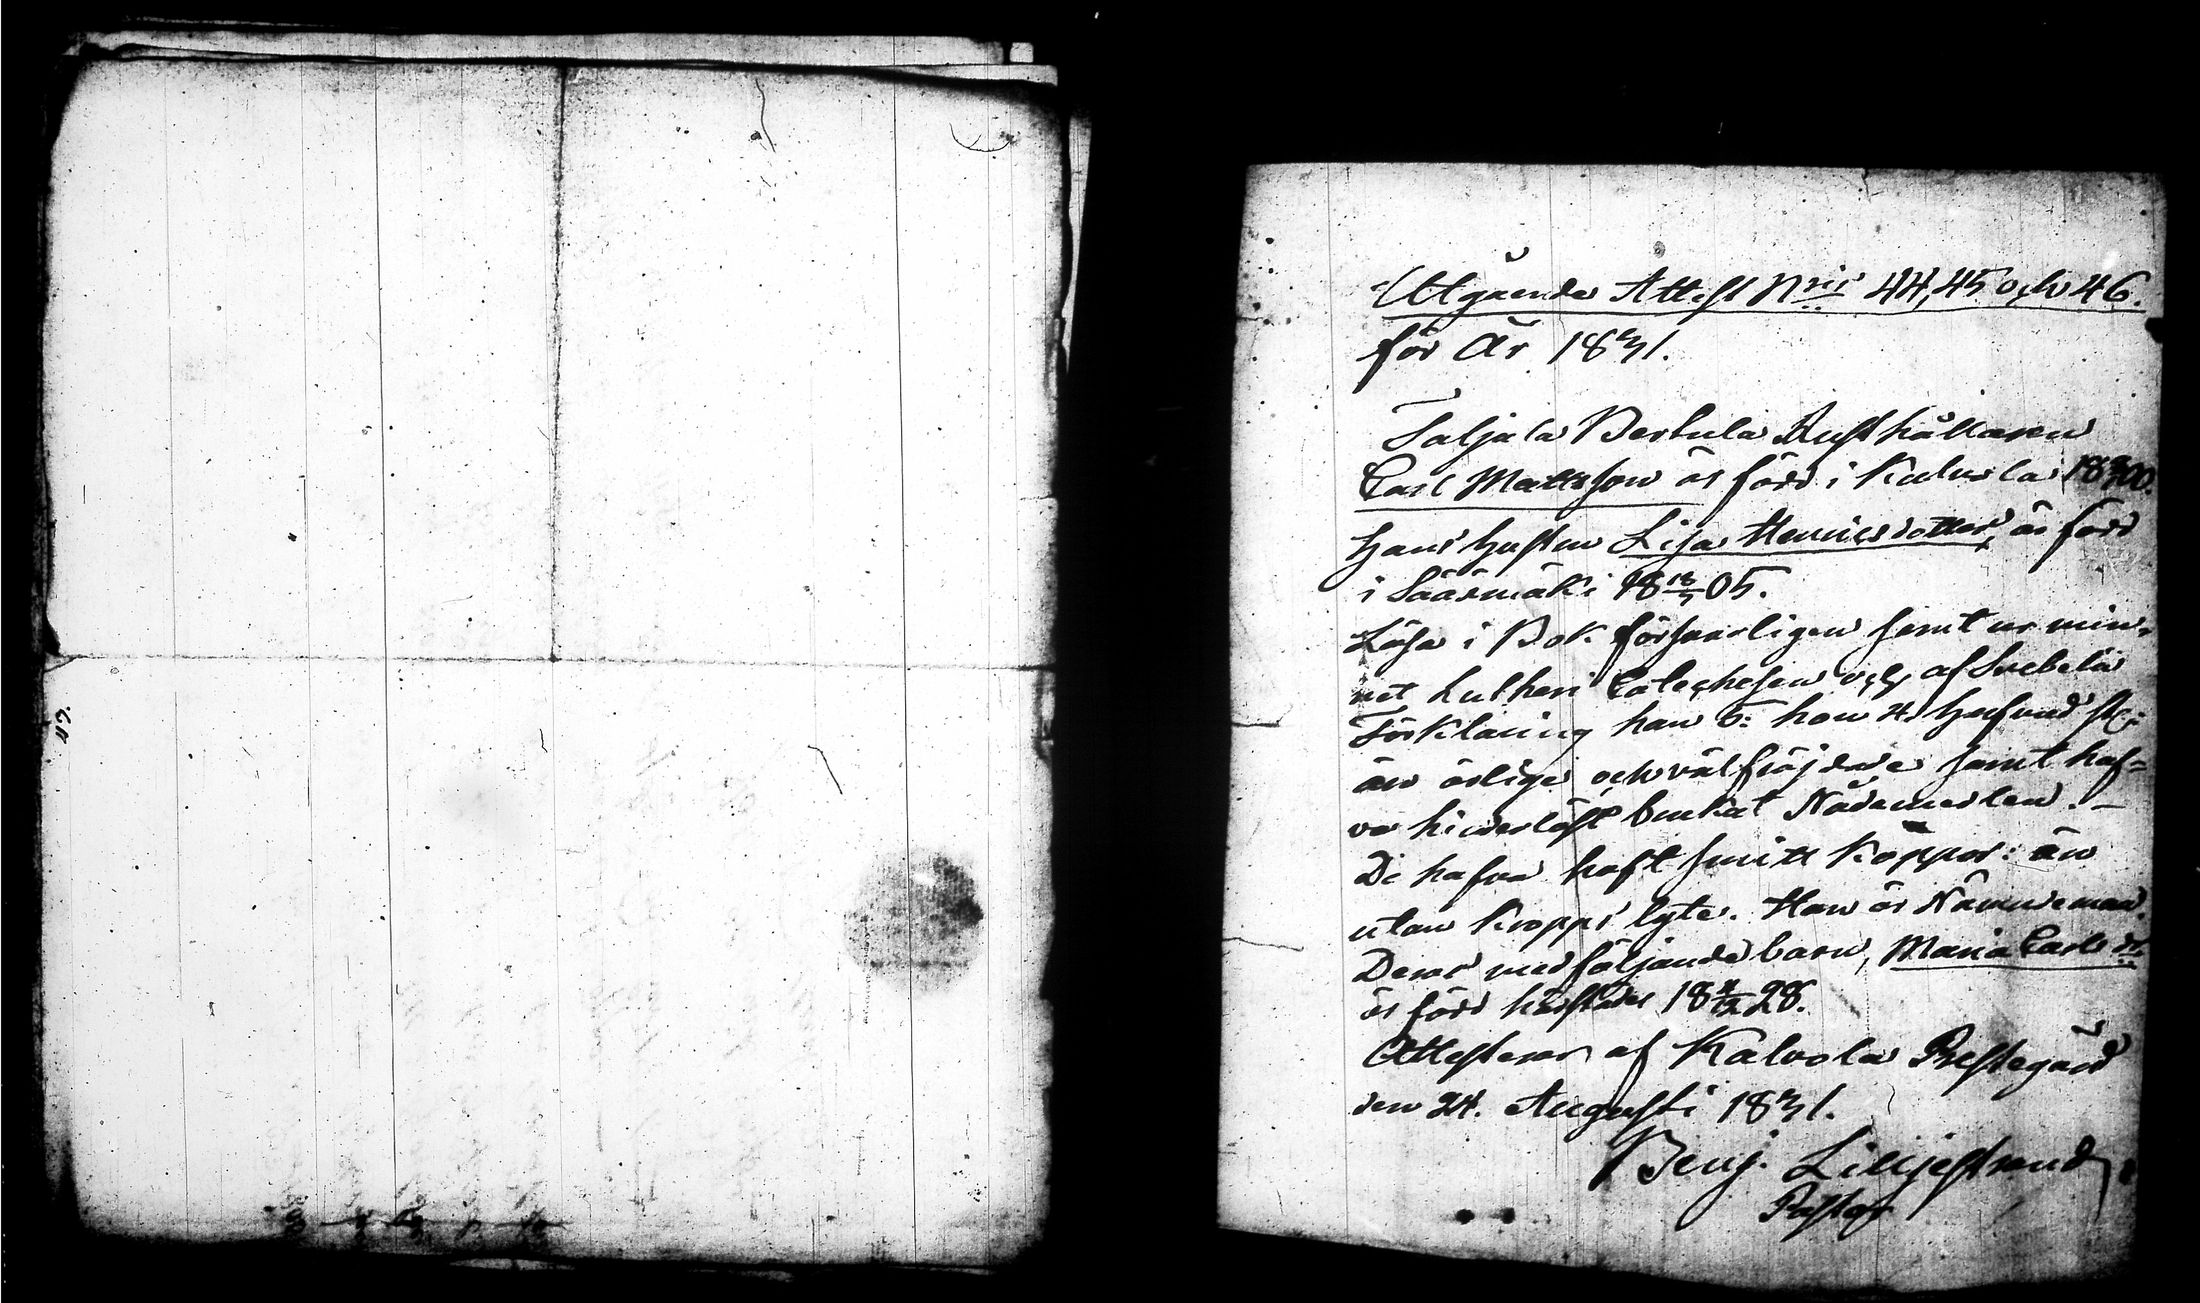 47.
Utgående Attest Nris 44, 45 och 46.
för År 1831.
Taljala Bertula Rusthållaren
Carl Mattsson är född i Kalvola
Hans hustru Lisa Henricsdotter, är född
i Sääxmäki 18 05.
Läsa i Bok försvarligen samt ur min-
net Lutheri Catechesen och af Svebelii
Förklaring han 5: hon 4. hufvud st:
än ärlige och välfräjdade samt haf=
va hinderlöst brukat Nådemedlen. —
De hafva haft smitt koppor: än
utan kropps lyte. Han är Nämndeman.
Deras medföljande barn, Maria Carls dr.
är född härstädes 18 28.
Attesterar af Kalvola Prestegård
den 24. Augusti 1831.
Benj. Liljestrand
Pastor